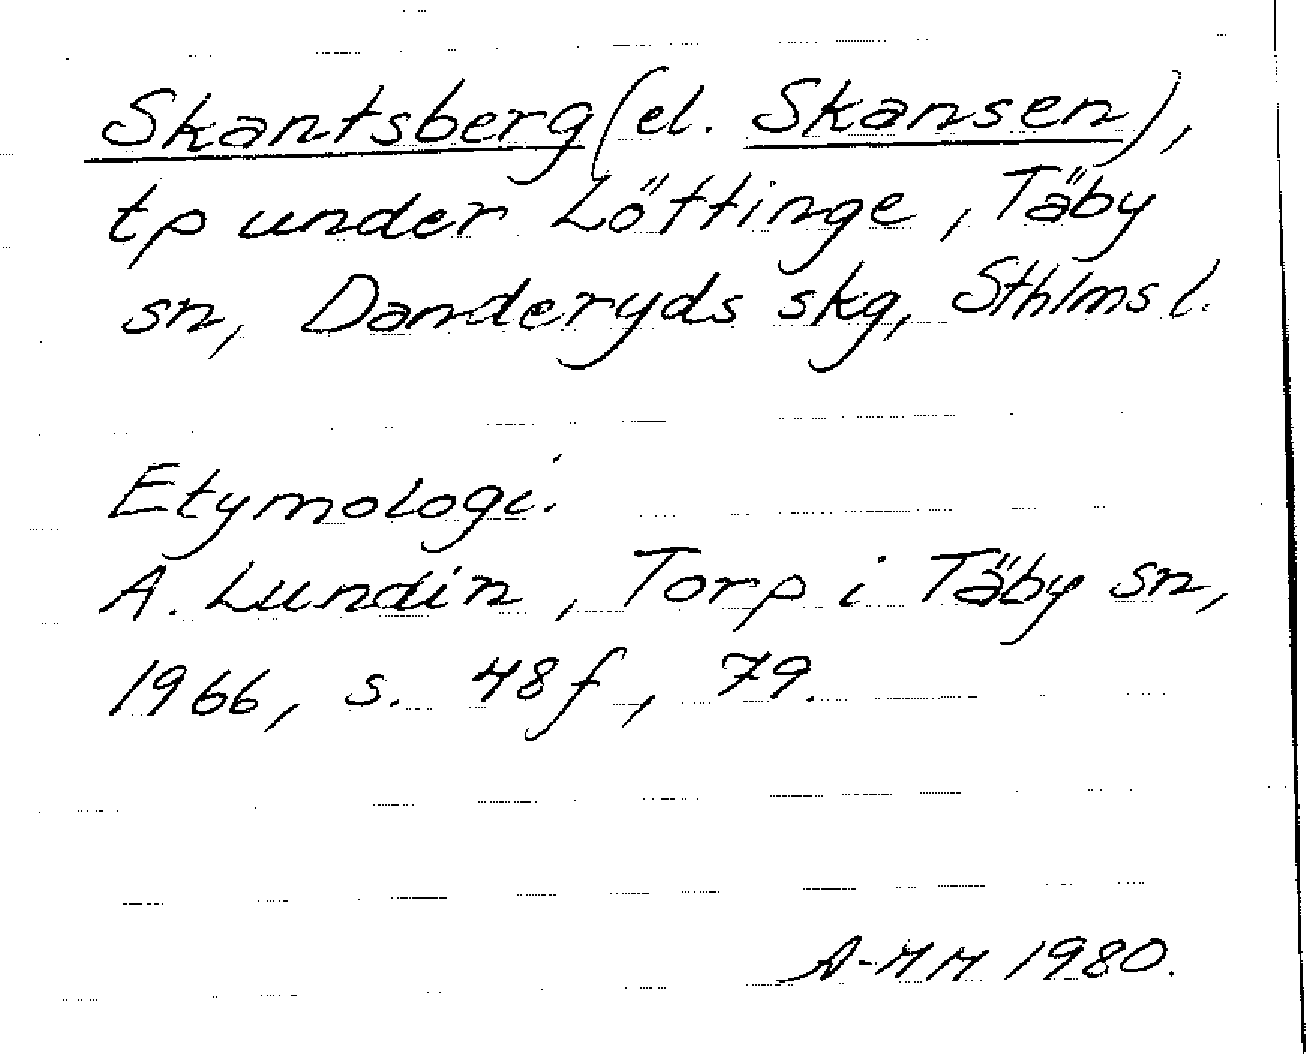 Skantsberg (el. Skansen),
tp under Löttinge, Täby
sn, Danderyds skg, Sthlms l.
Etymologi.
A. Lundin, Torp i Täby sn,
1966, s. 48f, 79.
A-MM 1980.